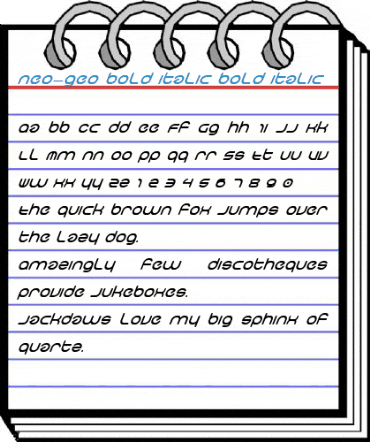 neo-geo bold italic bold italic
aa bb cc dd ee ff Gg hh ii JJ kk
LL mm nn oo pp qq rr ss tt uu vv
ww xx yy zz 1 2 3 4 5 6 7 8 9 0
the quick brown fox jumps over
the lazy dog.
amazingly few discotheques
provide jukeboxes.
jackdaws love my big sphinx of
quartz.